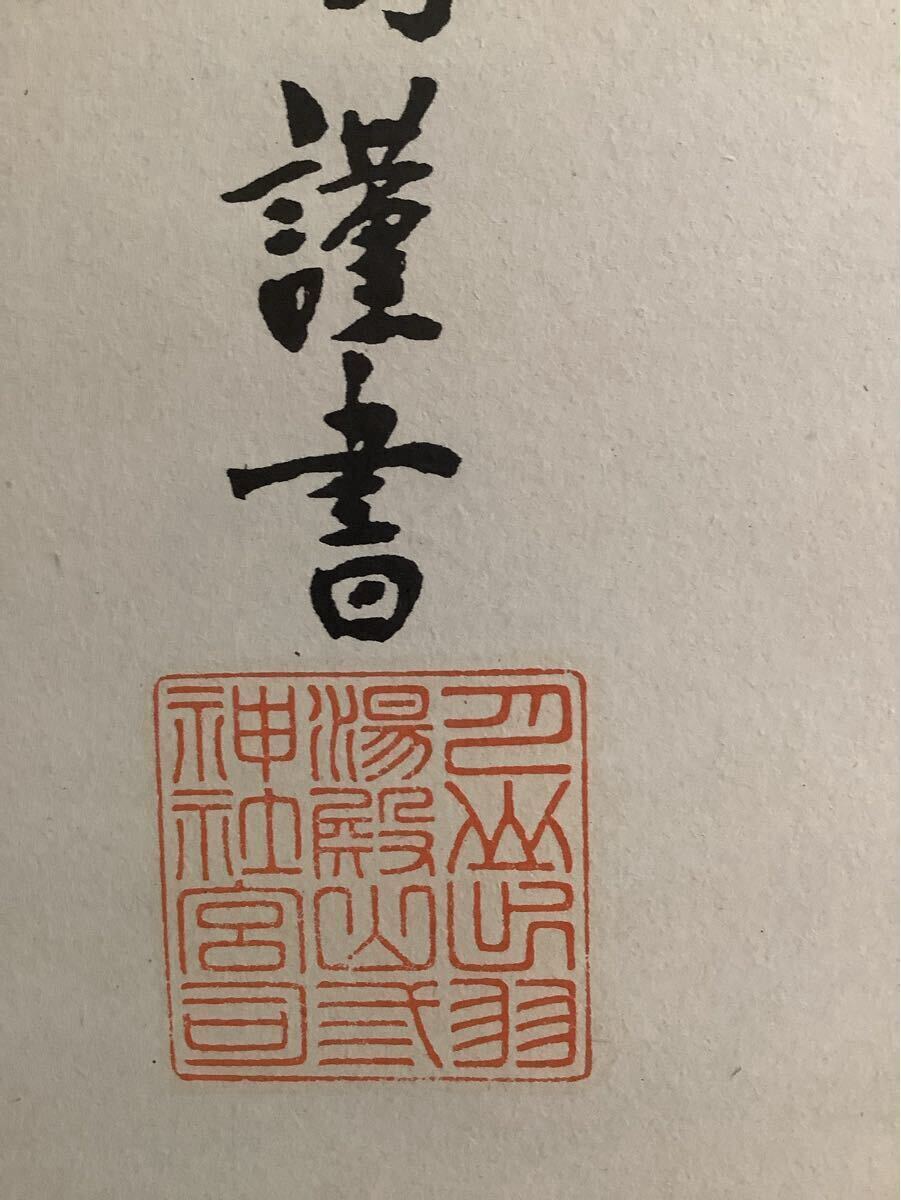 謹書
月山出羽
湯殿山弎
神社宮司